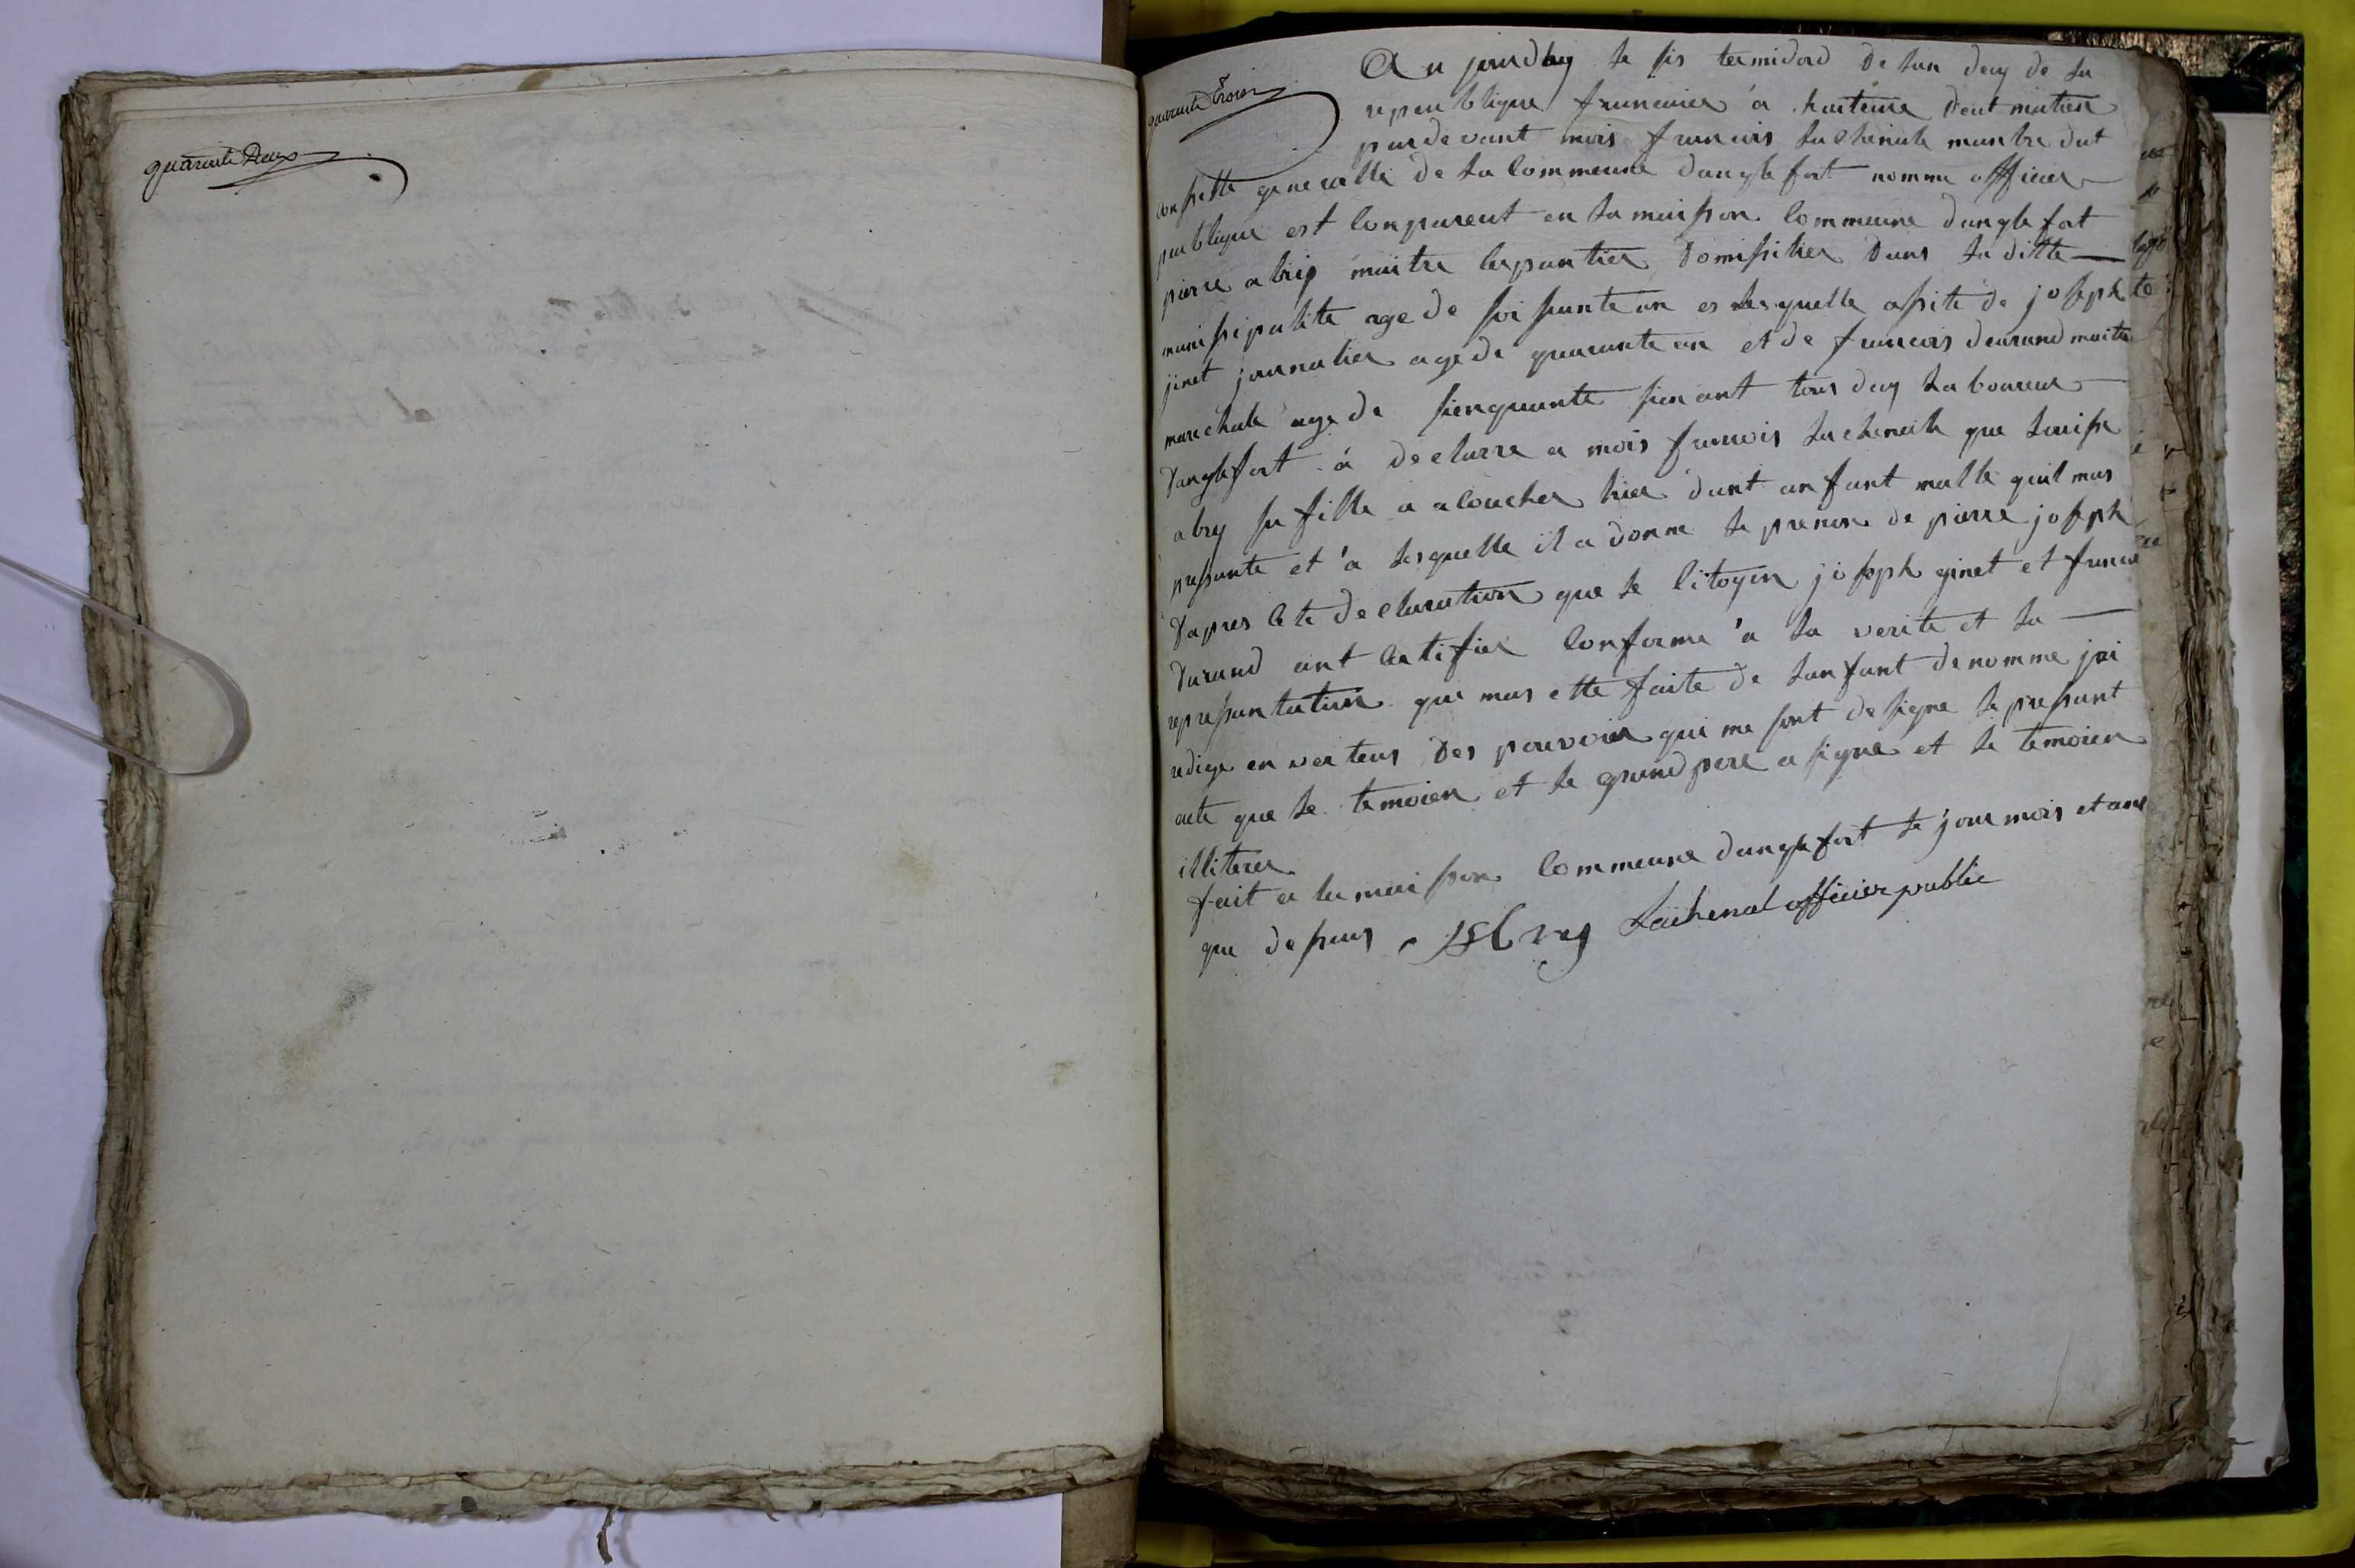 quarante Deux
quarante Trois
Au jourdhuy le sis termidord de lan deuy de la
repeublique francaise à huiteure deut matien
pardevant mois francois lachenale manbre dut
consielle generalle de la Commeune danglefort nomme officier
peublique est Conparent en la maison Commeune danglefort
pierre abrÿ maitre Cerpantier Domisilier Dans la ditte
munisipalite age de soisante an es lesquelle asite de joseph
jinet journalier age de quarante an et de francois deurand maitre
marechale age de sienquante sien ant tous deuy laboureur
danglefort à declarre a mois francois lachenale que louise
abry sa fille a acoucher hier dunt anfant malle quil mas
presante et à lesquelle il a donne le prenon de pierre joseph
dapres Cete declaration que le Citoyen joseph ginet et francois
durand ont Certifier Conforme à la verite et la
represantation que mas ette faite de lanfant denomme jai
redige en verteus Des pouvoier qui me sont designe le presant
acte que le temoien et le grand pere a signe et le temoien
illiterer
fait a la maison Commeune danglefort le jour mois et ans
que deseus Abry Lachenal officier public